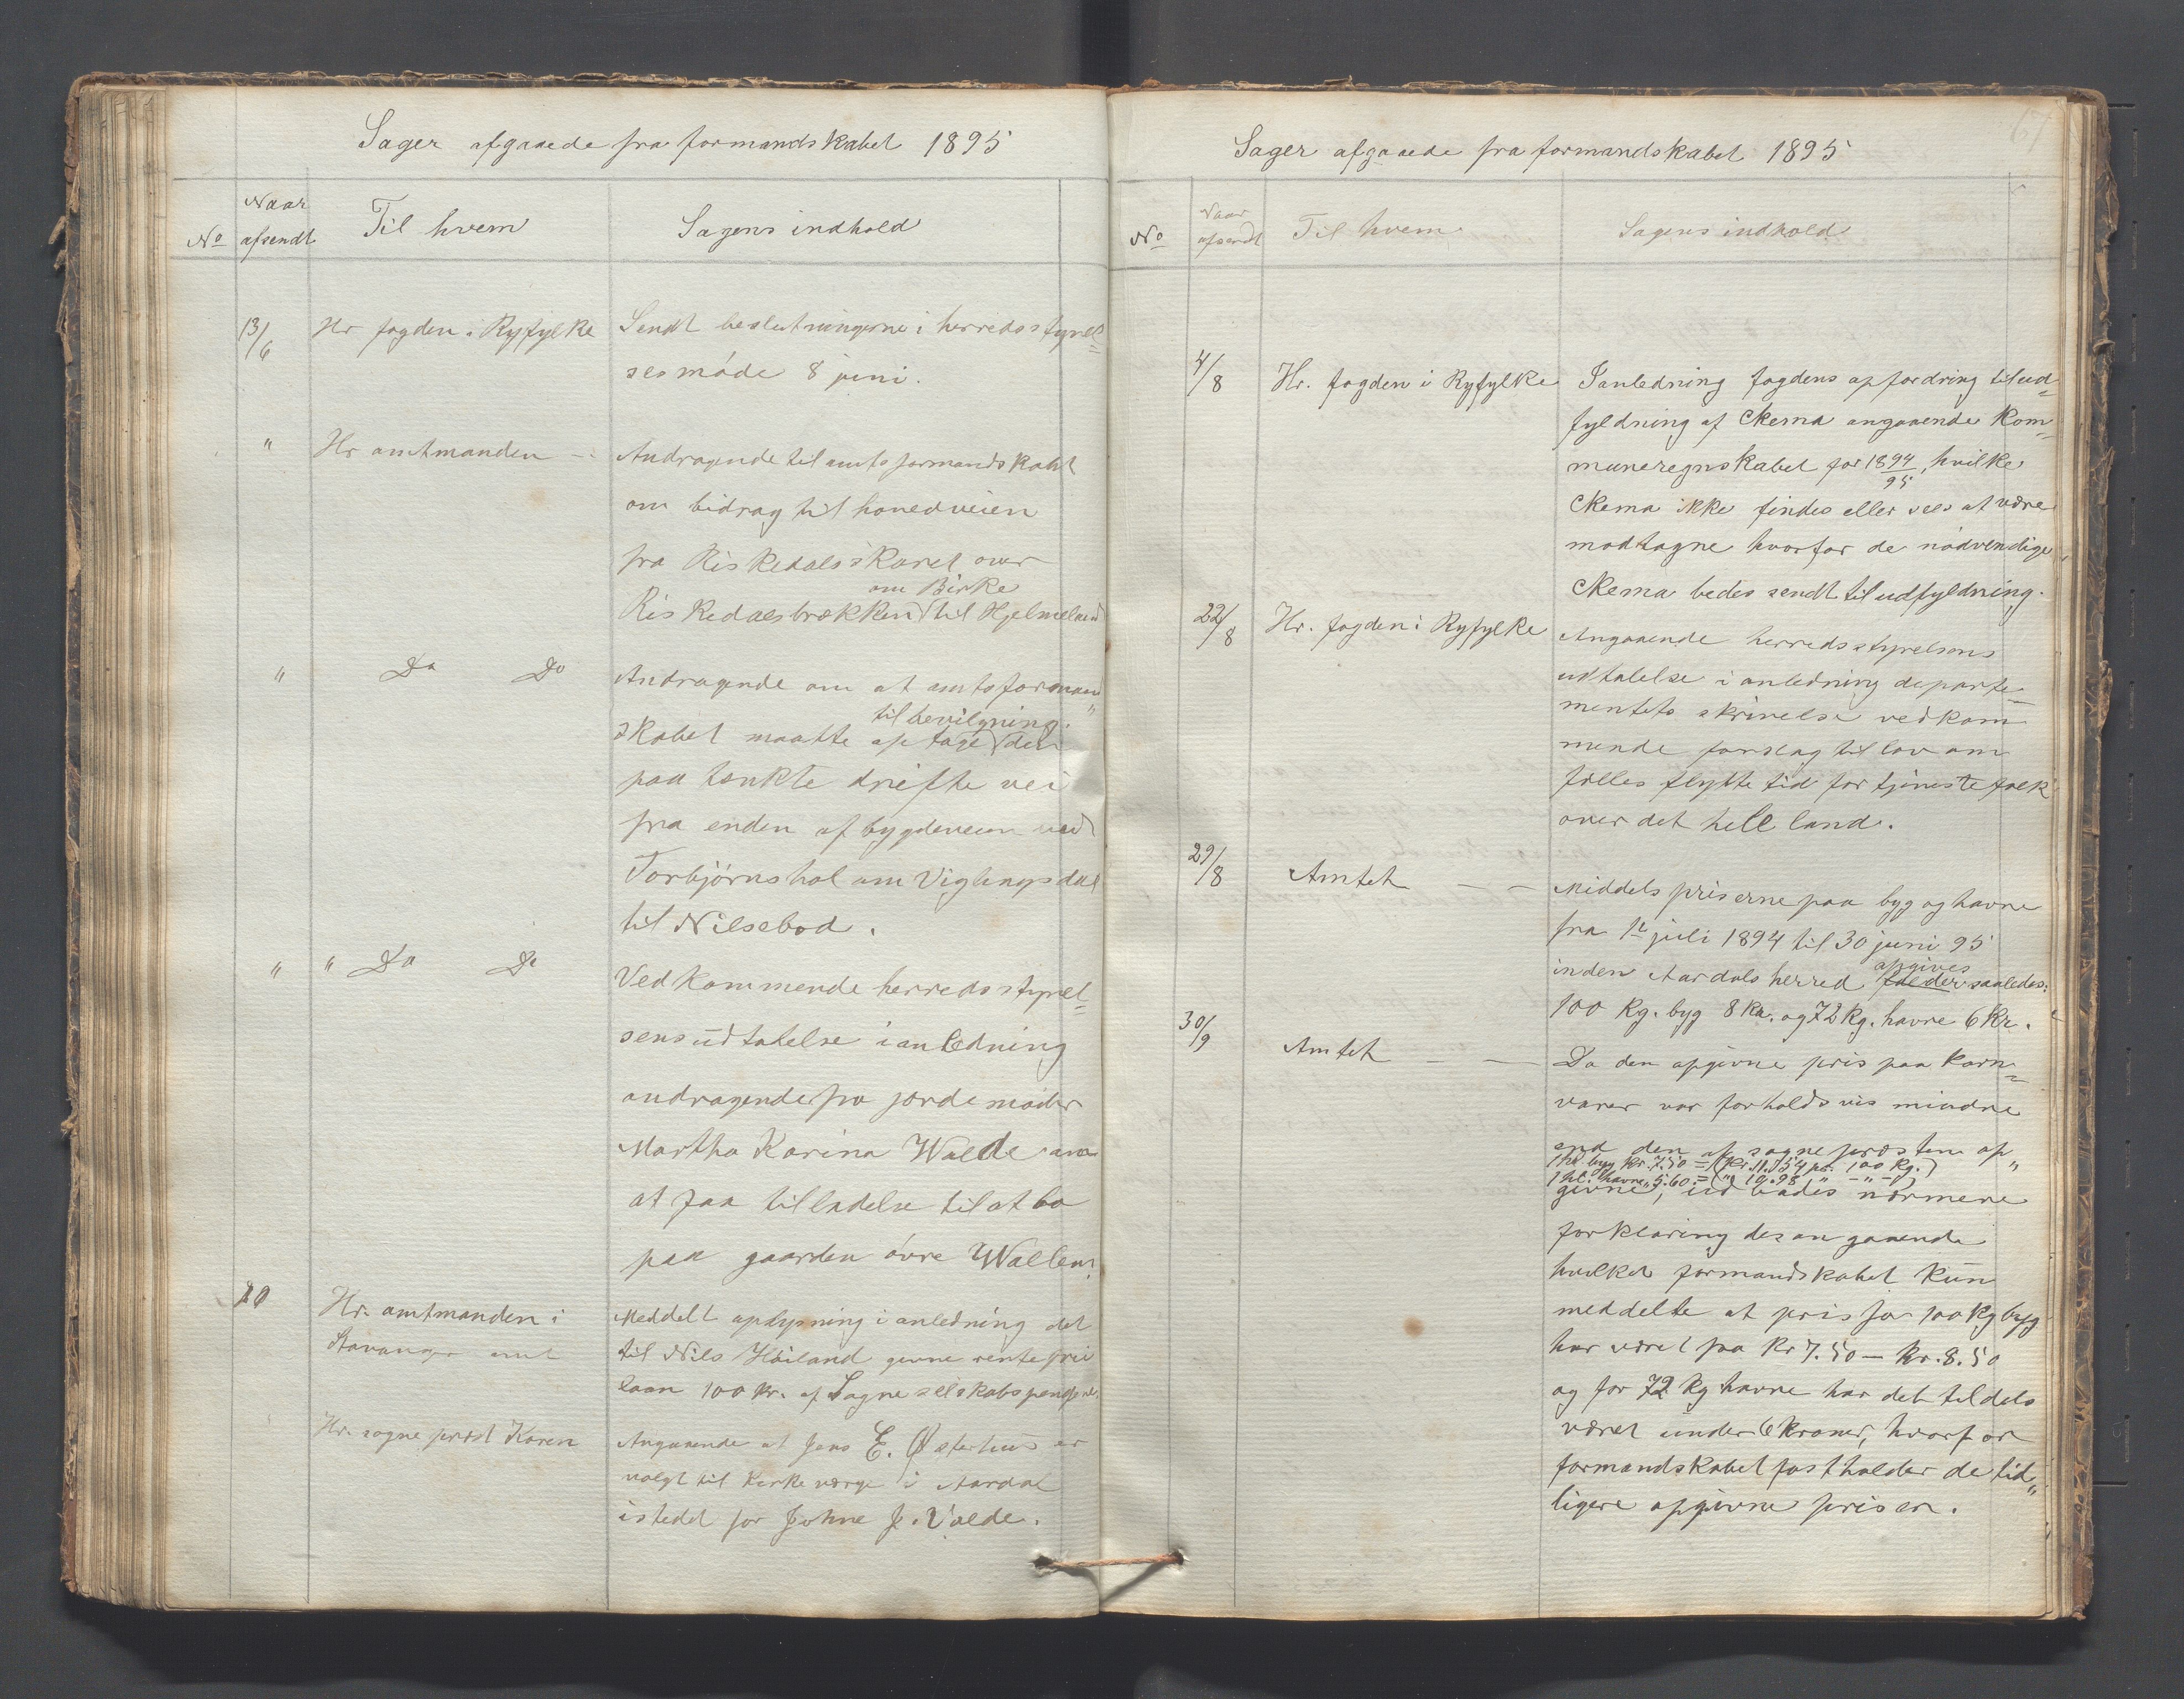 Sager afgaaede fra formandskabet 1895
No
Naar afsendt
Til hvem
Sagens indhold
13/6 Hr fogden i Ryfylke
Sendt beslutningerne i herredsstyrel=
ses móde 8 juni.
" Hr amtmanden —
Andragende til amtsformandskabet
om bidrag til hovedveien
fra Riskedalsskaret over
om Birke
Riskedalsbrækken til Hjelmeland
" Do Do
Andragende om at amtsforman"
til bevilgning.
skabet maatte optage den
paa tænkte driftevei
fra enden af bygdeveien ved
Torbjórnshol om Viglengsdal
til Nilsebod.
" " Do Do
Vedkommende herredsstyrel=
sens udtalelse i anledning
andragende fra jordemoder
Martha Karina Walde om
at faa tilladelse til at bo
paa gaarden óvre Wallen.
20 Hr. amtmanden i
Stavanger amt
Meddelt oplysning i anledning det
til Nils Hóiland givne rentefrie
laan 100 kr. af Sagneselskabspengene.
Hr. sogneprest Koren
Angaaende at Jens E. Østerhus er
valgt til kirkeværge i Aardal
istedet for Johne J. Valde.
67
Sager afgaaede fra formandskabet 1895
No
Naar afsendt
Til hvem
Sagens indhold
4/8 Hr. fogden i Ryfylke
I anledning fogdens opfordring til ud=
fyldning af skema angaaende kom=
muneregnskabet for 1894/95, hvilke
skema ikke findes eller sees at være
modtagne hvorfor de nódvendige
skema bedes sendt til udfyldning.
22/8 Hr. fogden i Ryfylke
Angaaende herredsstyrelsens
udtalelse i anledning departe=
mentets skrivelse vedkom
mende forslag til lov om
fælles flyttetid for tjenestefolk
over det hele land.
29/8 Amtet — —
Middelspriserne paa byg og havre
fra 1ste juli 1894 til 30 juni 95
opgives
inden Aardals herred falder saaledes:
100 kg. byg 8 kr. og 72 kg. havre 6 kr.
30/9 Amtet — —
Da den opgivne pris paa korn=
varer var forholdsvis mindre
end den af sognepresten op"
1 hl byg kr. 7.50 = (kr. 11.54 pr. 100 kg.)
1 hl. havre " 5.60 = (" 10.98 " — " —)
givne, udbades nærmere
forklaring desangaaende
hvilket formandskabet kun
meddelte at pris for 100 kg byg
har været fra kr 7.50 — kr. 8.50
og for 72 kg havre har det tildels
været under 6 kroner, hvorfor
formandskabet fastholder de tid"
ligere opgivne priser.